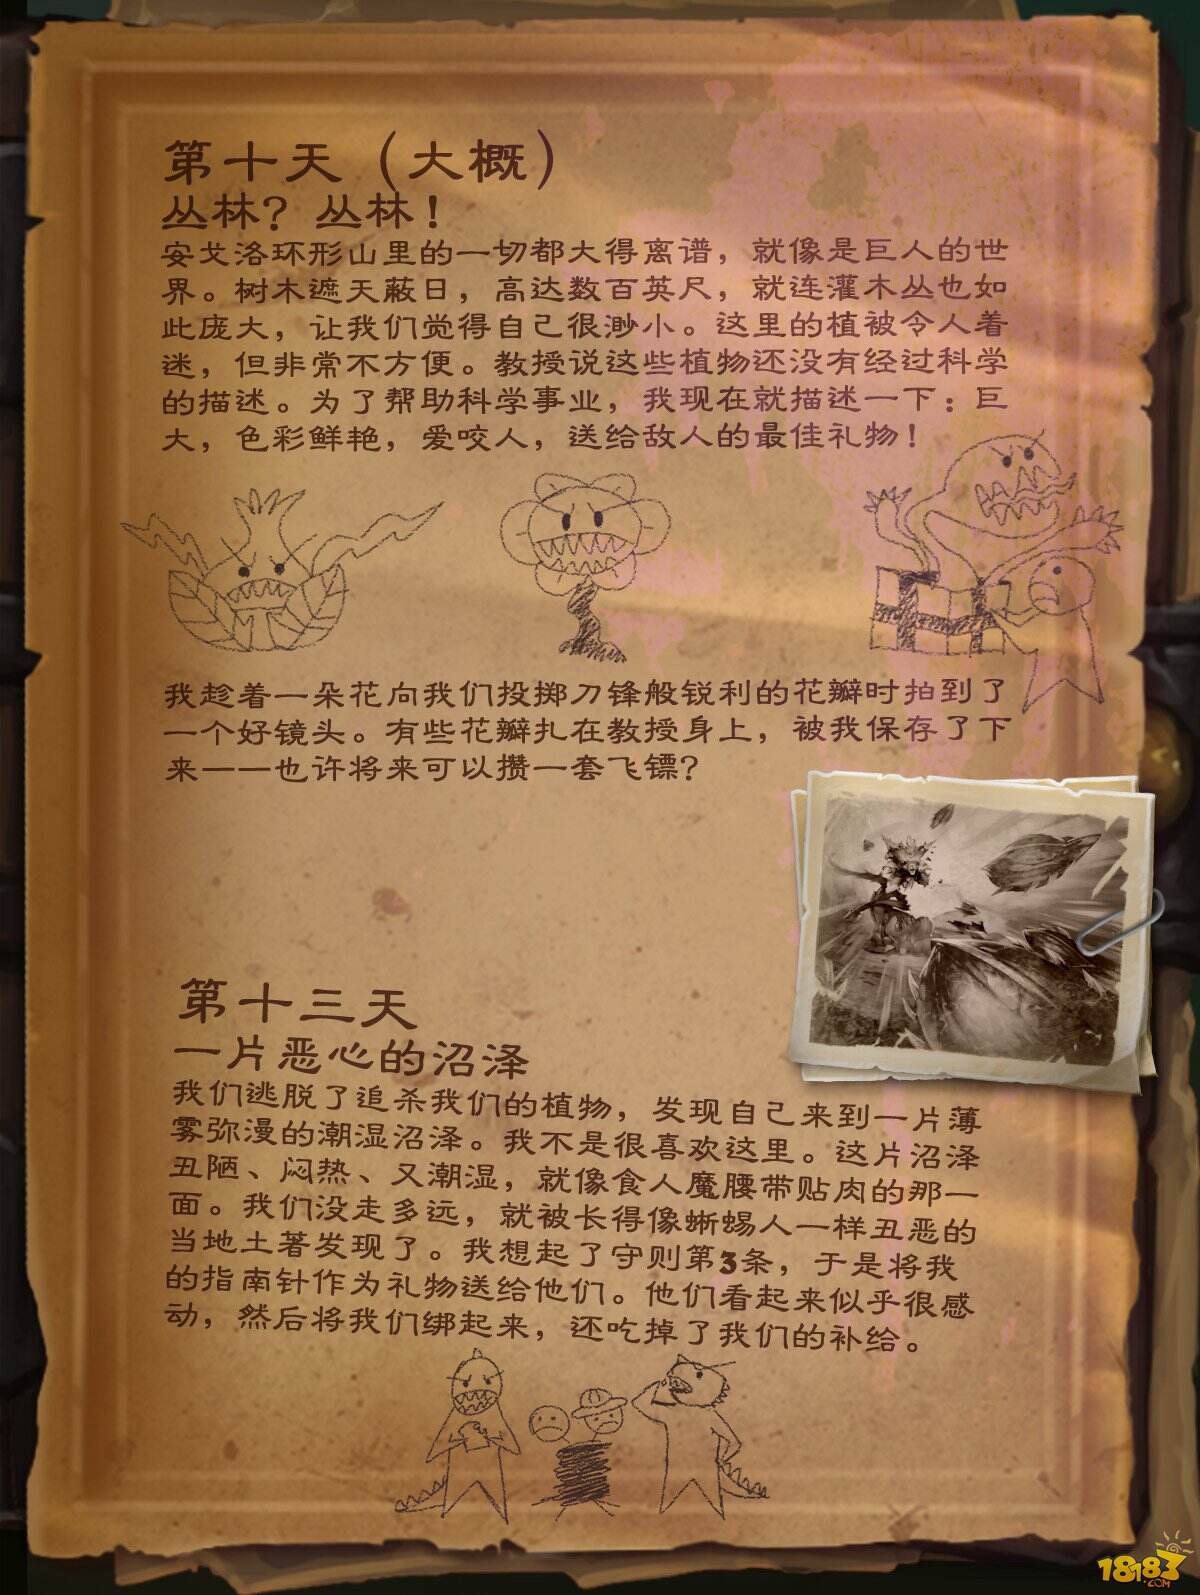 第十天（大概）
丛林？丛林！
安戈洛环形山里的一切都大得离谱，就像是巨人的世
界。树木遮天蔽日，高达数百英尺，就连灌木丛也如
此庞大，让我们觉得自己很渺小。这里的植被令人着
迷，但非常不方便。教授说这些植物还没有经过科学
的描述。为了帮助科学事业，我现在就描述一下：巨
大，色彩鲜艳，爱咬人，送给敌人的最佳礼物！
我趁着一朵花向我们投掷刀锋般锐利的花瓣时拍到了
一个好镜头。有些花瓣扎在教授身上，被我保存了下
来——也许将来可以攒一套飞镖？
第十三天
一片恶心的沼泽
我们逃脱了追杀我们的植物，发现自己来到一片薄
雾弥漫的潮湿沼泽。我不是很喜欢这里。这片沼泽
丑陋、闷热、又潮湿，就像食人魔腰带贴肉的那一
面。我们没走多远，就被长得像蜥蜴人一样丑恶的
当地土著发现了。我想起了守则第3条，于是将我
的指南针作为礼物送给他们。他们看起来似乎很感
动，然后将我们绑起来，还吃掉了我们的补给。
18183
.COM